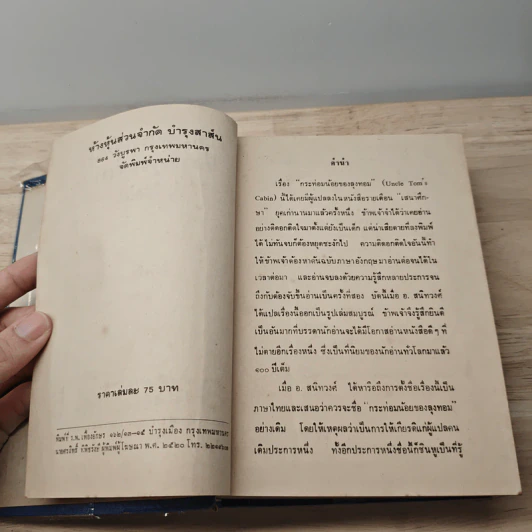 ห้างหุ้นส่วนจำกัด บำรุงสาส์น
วังบูรพา กรุงเทพมหานคร
จัดพิมพ์จำหน่าย
ราคาเล่มละ 75 บาท
บำรุงเมือง กรุงเทพมหานคร
ผู้พิมพ์ผู้โฆษณา พ.ศ. ๒๕๒๐ โทร.
คำนำ
เรื่อง "กระท่อมน้อยของลุงทอม" (Uncle Tom's
Cabin) นี้ได้เคยมีผู้แปลลงในหนังสือรายเดือน "เสนาศึก-
ษา" ยุคเก่านานมาแล้วครั้งหนึ่ง ข้าพเจ้าจำได้ว่าเคยอ่าน
อย่างติดอกติดใจมาตั้งแต่ยังเป็นเด็ก แต่น่าเสียดายที่ลงพิมพ์
ได้ไม่ทันจบก็ต้องหยุดชะงักไป ความติดอกติดใจอันนี้ทำ
ให้ข้าพเจ้าต้องหาต้นฉบับภาษาอังกฤษมาอ่านต่อจนได้ใน
เวลาต่อมา และอ่านจบลงด้วยความรู้สึกหลายประการจน
ถึงกับต้องจับขึ้นอ่านเป็นครั้งที่สอง บัดนี้เมื่อ อ. สนิทวงศ์
ได้แปลเรื่องนี้ออกเป็นรูปเล่มสมบูรณ์ ข้าพเจ้าจึงรู้สึกยินดี
เป็นอันมากที่บรรดานักอ่านจะได้มีโอกาสอ่านหนังสือดีๆ ที่
ไม่ตายอีกเรื่องหนึ่ง ซึ่งเป็นที่นิยมของนักอ่านทั่วโลกมาแล้ว
๑๐๐ ปีเต็ม
เมื่อ อ. สนิทวงศ์ ได้หารือถึงการตั้งชื่อเรื่องนี้เป็น
ภาษาไทยและเสนอว่าควรจะชื่อ "กระท่อมน้อยของลุงทอม"
อย่างเดิม โดยให้เหตุผลว่าเป็นการให้เกียรติแก่ผู้แปลคน
เดิมประการหนึ่ง ทั้งอีกประการหนึ่งชื่อนี้ก็ชินหูเป็นที่รู้